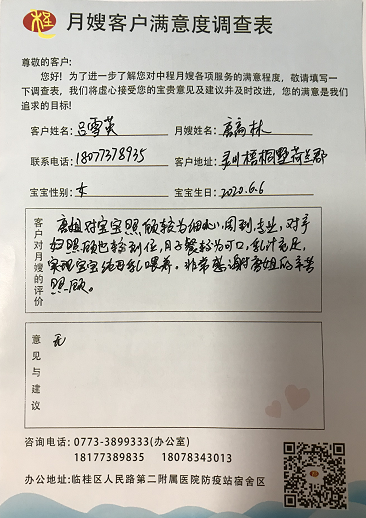 月嫂客户满意度调查表
尊敬的客户:
您好!为了进一步了解您对中程月嫂各项服务的满意程度,敬请填写一
下调查表,我们将虚心接受您的宝贵意见及建议并及时改进,您的满意是我们
追求的目标!
客户姓名:吕雪英 月嫂姓名:唐离林
联系电话:18077378935 客户地址:灵川梧桐墅荷兰郡
宝宝性别:女 宝宝生日:2020.6.6
客户对月嫂的评价
唐姐对宝宝照顾较为细心,周到,专业,对孕
妇照顾也较到位,月子餐较为可口,乳汁充足,
实现宝宝纯母乳喂养。非常感谢唐姐的辛苦
照顾。
意见与建议
无
咨询电话:0773-3899333(办公室)
18177389835 18078343013
办公地址:临桂区人民路第二附属医院防疫站宿舍区